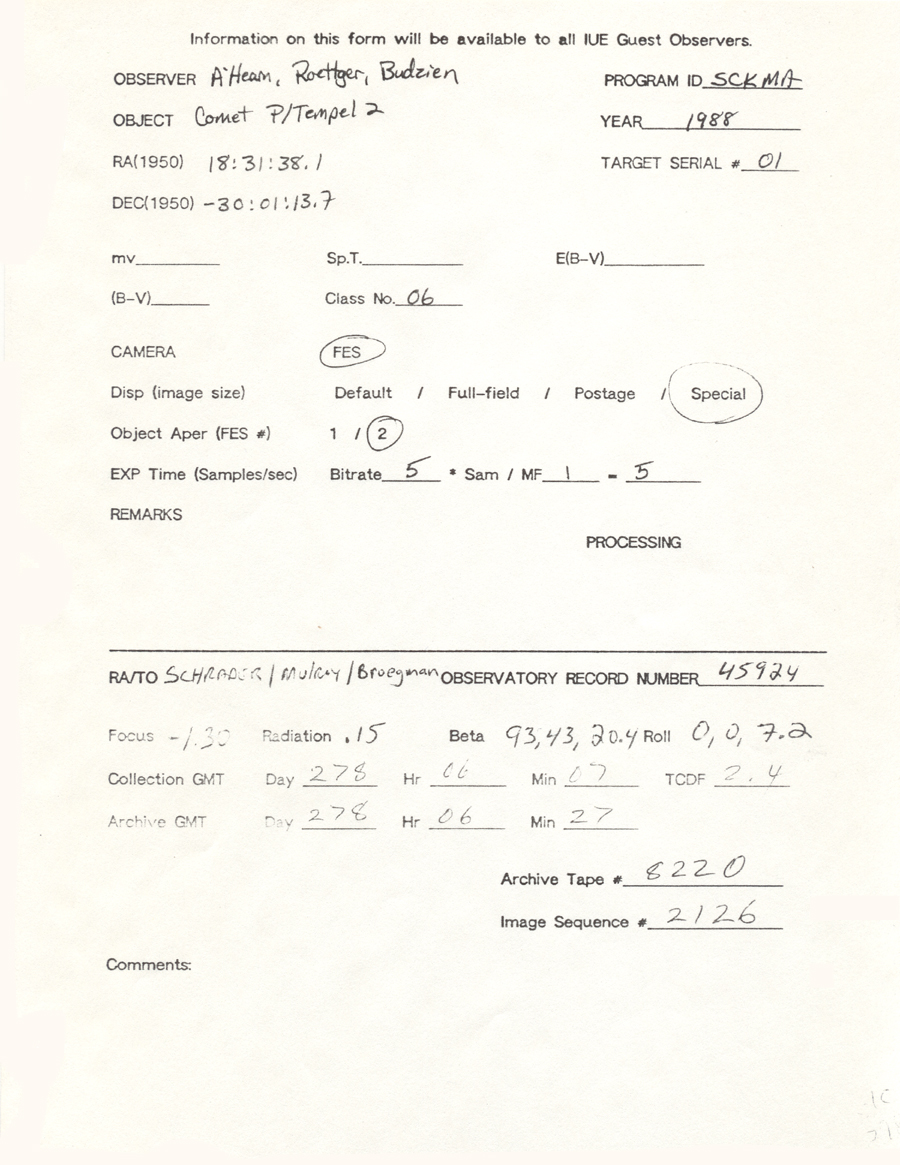 Information on this form will be available to all IUE Guest Observers.
OBSERVER A'Hearn, Roettger, Budzien PROGRAM ID SCKMA
OBJECT Comet P/Tempel 2 YEAR 1988
RA(1950) 18:31:38.1 TARGET SERIAL # 01
DEC(1950) -30:01:13.7
mv Sp.T. E(B-V)
(B-V) Class No. 06
CAMERA FES
Disp (image size) Default / Full-field / Postage / Special
Object Aper (FES #) 1 / 2
EXP Time (Samples/sec) Bitrate 5 * Sam / MF 1 = 5
REMARKS
PROCESSING
RA/TO SCHRADER / / Broegman OBSERVATORY RECORD NUMBER 45924
Focus -1.30 Radiation .15 Beta 93, 43, 20.4 Roll 0, 0, 7.2
Collection GMT Day 278 Hr 06 Min 07 TCDF 2.4
Archive GMT Day 278 Hr 06 Min 27
Archive Tape # 8220
Image Sequence # 2126
Comments: